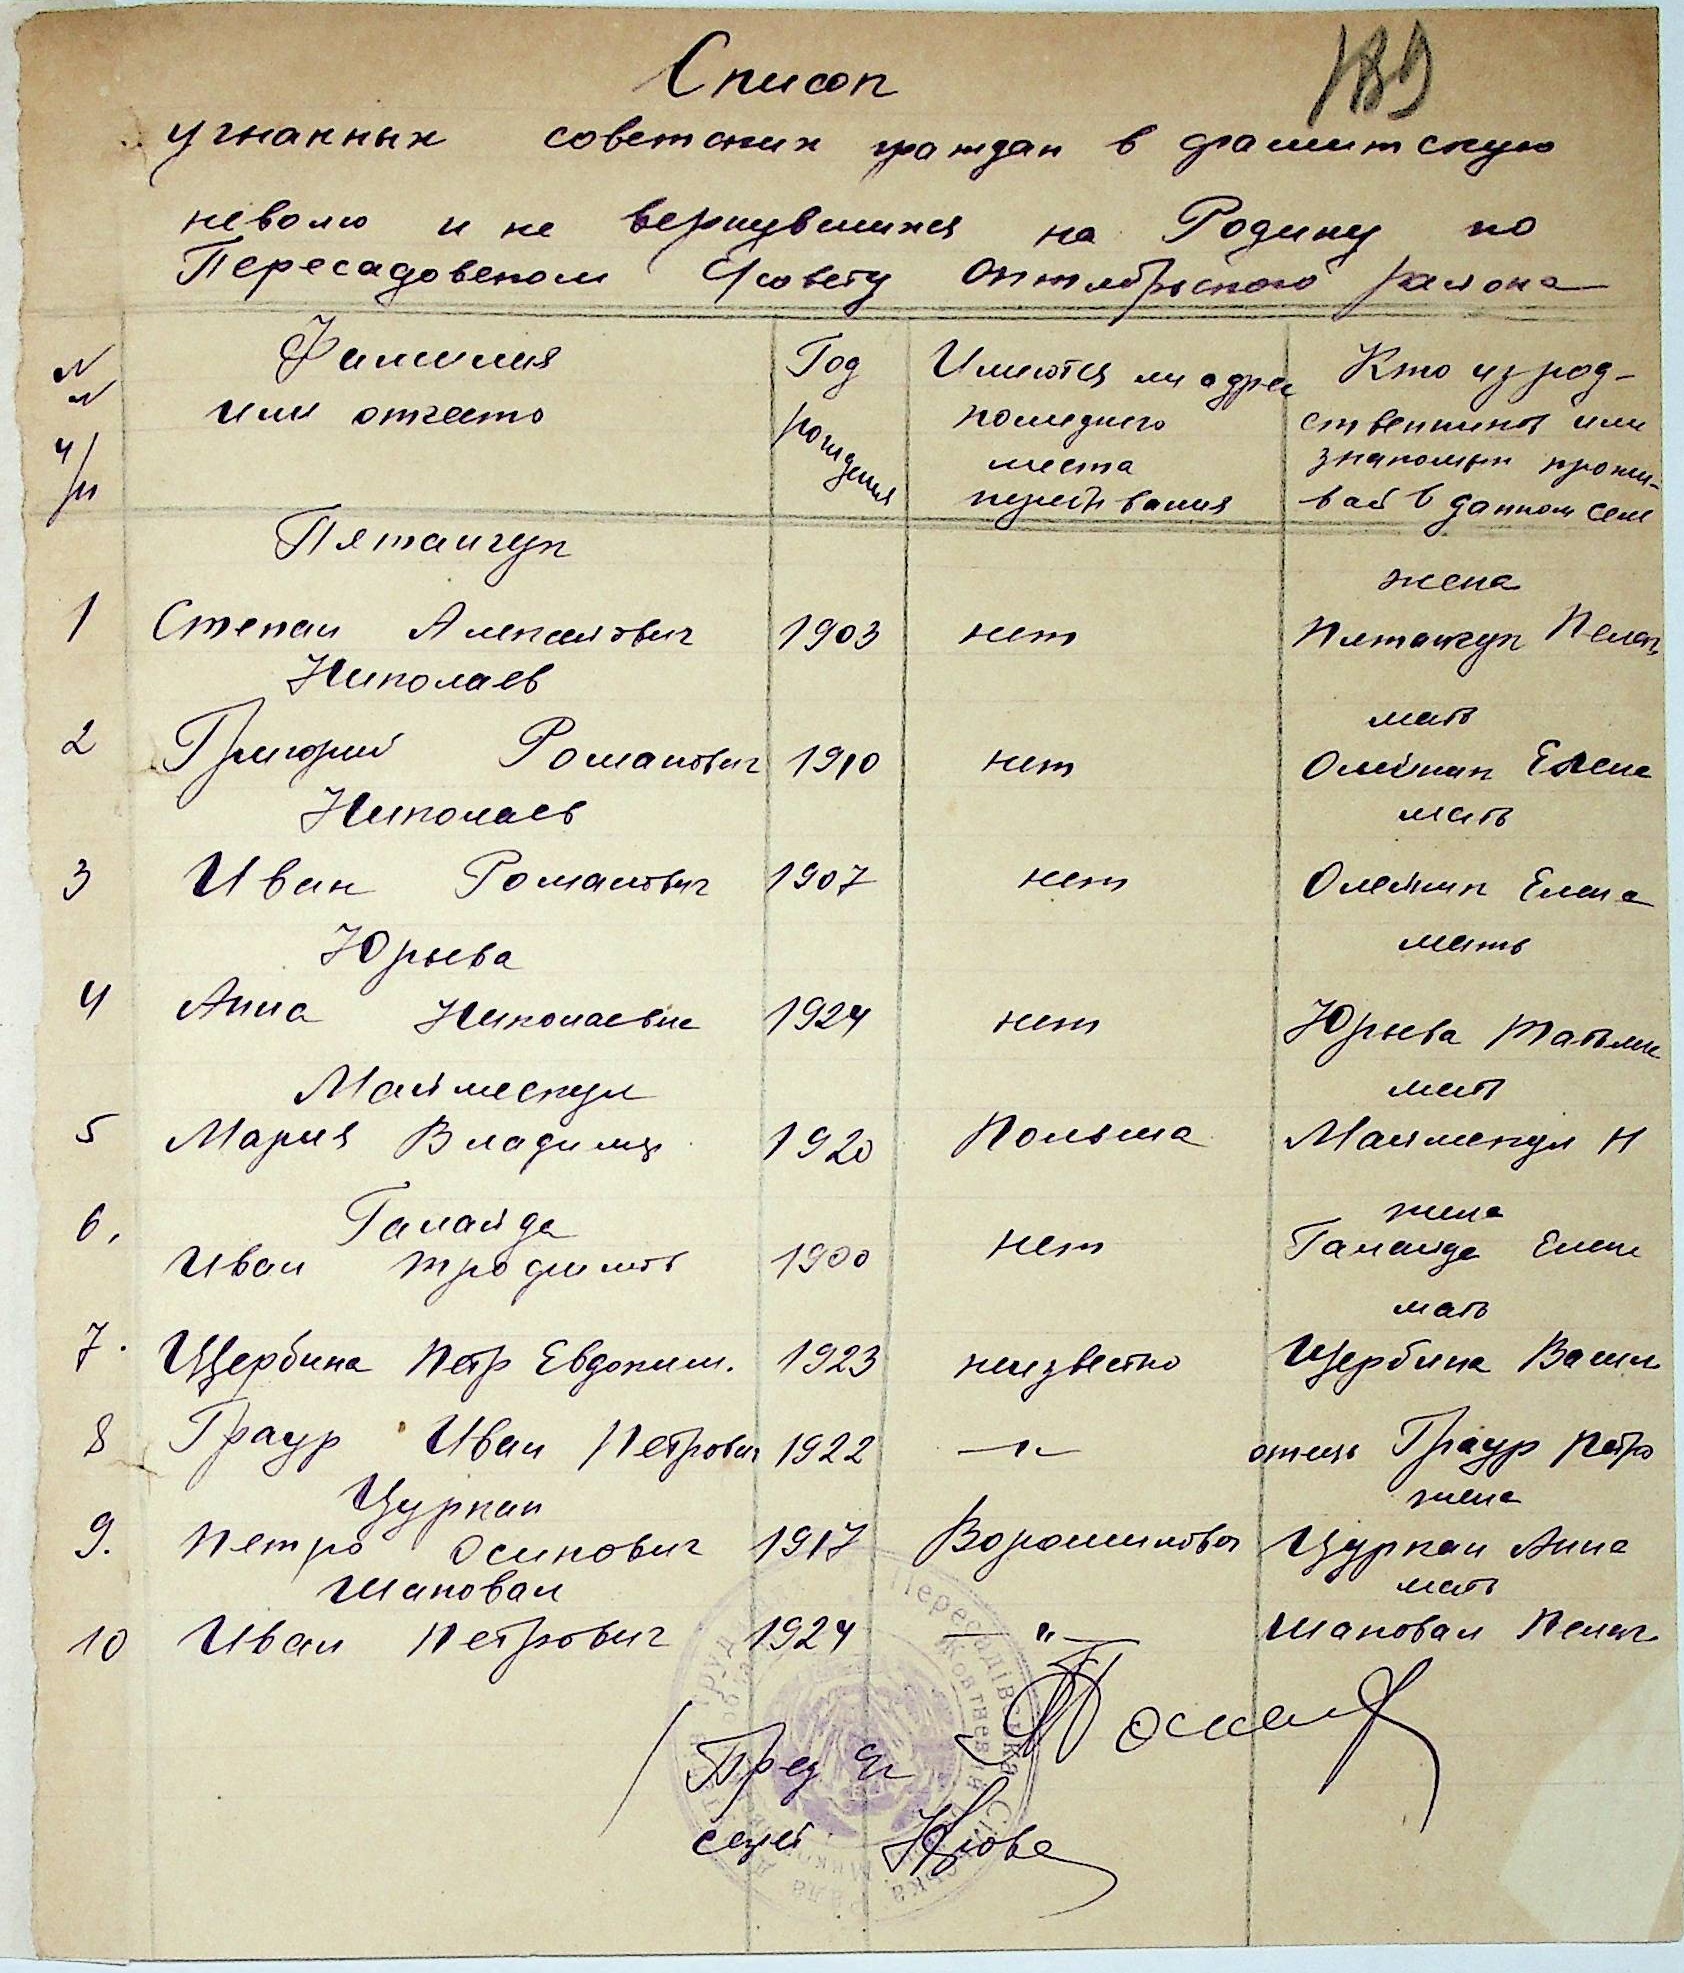 189
Список
угнанных советских граждан в фашистскую
неволю и не вернувшихся на Родину по
Пересадовском с/совету Октябрьского района
№ № п/п
Фамилия или отчество
Год рождения
Имеются ли адрес последнего места пребывания
Кто из родственников или знакомых прожива в данном селе
Пятайчук жена
1 Степан Алексеевич 1903 нет Пятайчук Пелаг
Николаев мать
2 Григорий Романович 1910 нет Олейник Елена
Николаев мать
3 Иван Романович 1907 нет Олейник Елена
Юрьева мать
4 Анна Николаевна 1924 нет Юрьева Татьян
Маймескул мать
5 Мария Владимир 1920 Польша Маймескул Н
Галайда жена
6. Иван Трофимов 1900 нет Галайда Елен
мать
7. Щербина Петр Евдоким. 1923 неизвестно Щербина Васил
8 Граур Иван Петрович 1922 —"— отець Граур Петро
Цуркан жена
9. Петро Осипович 1917 Ворошиловск Цуркан Анна
Шаповал мать
10 Иван Петрович 1924 —"— Шаповал Пелаг
Пред с/с
секрет
Пересадівська Сільська Рада